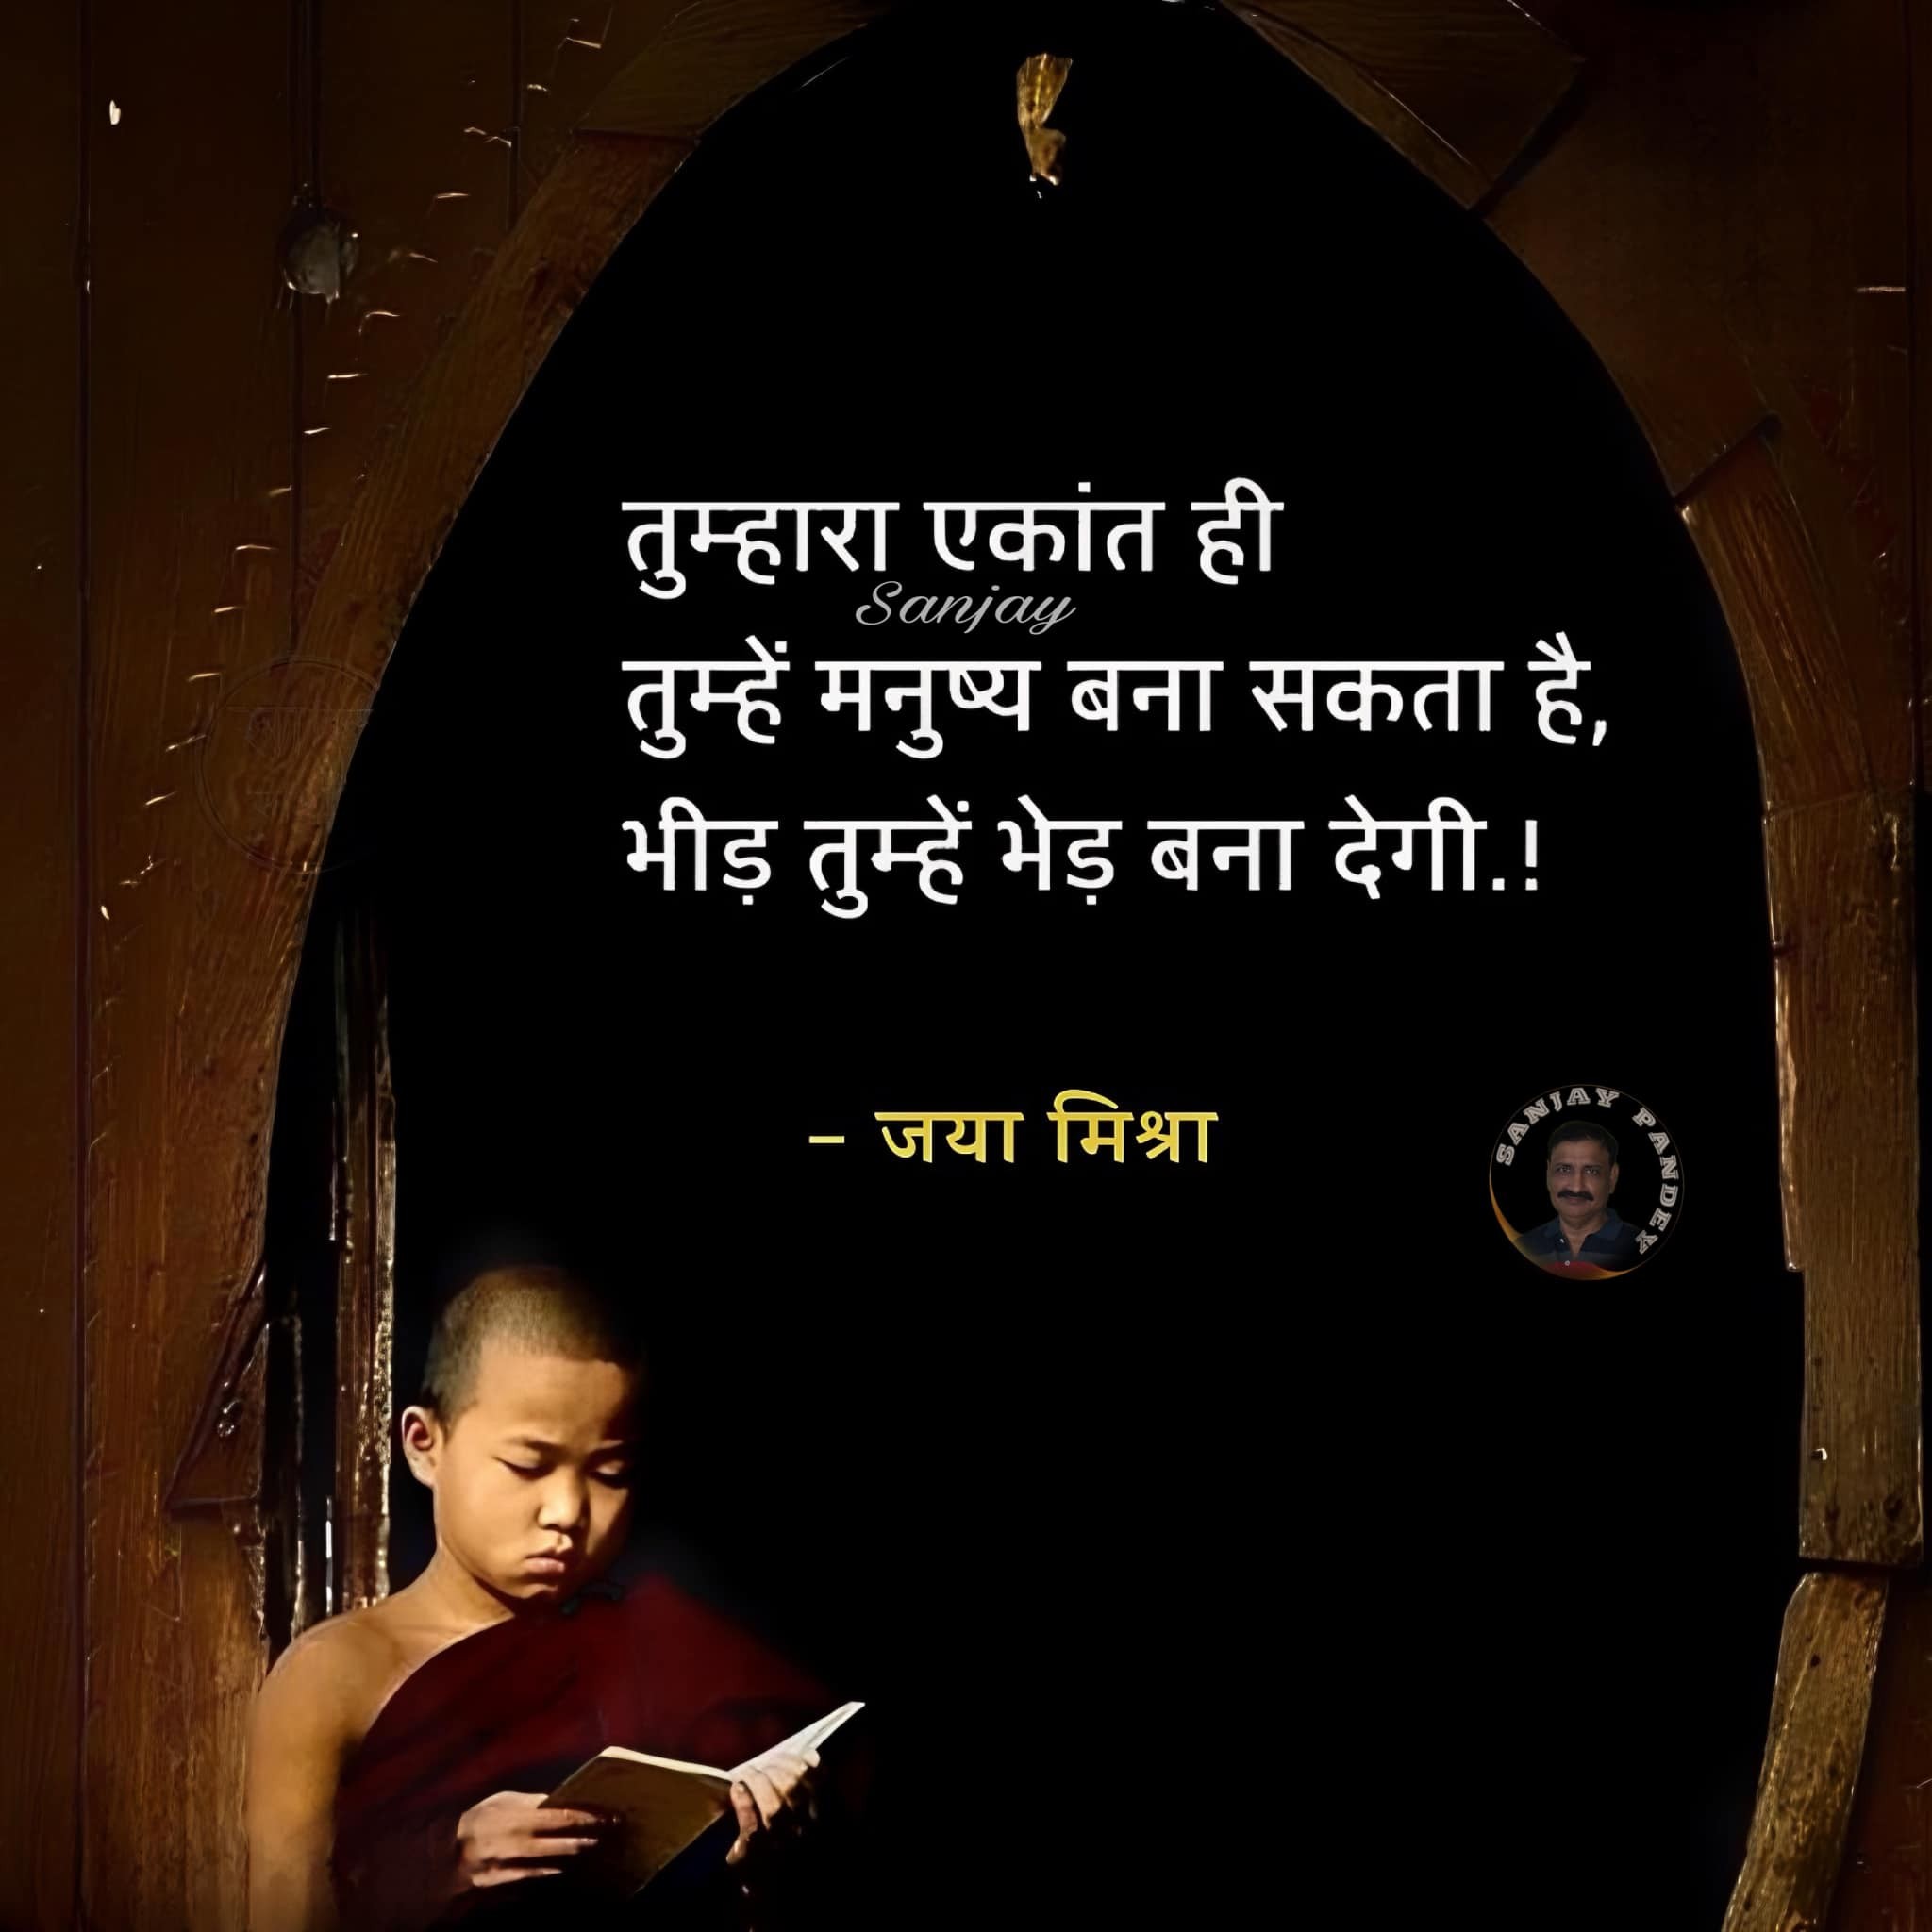 तुम्हारा एकांत ही
Sanjay
तुम्हें मनुष्य बना सकता है,
भीड़ तुम्हें भेड़ बना देगी.!
– जया मिश्रा
SANJAY PANDEY